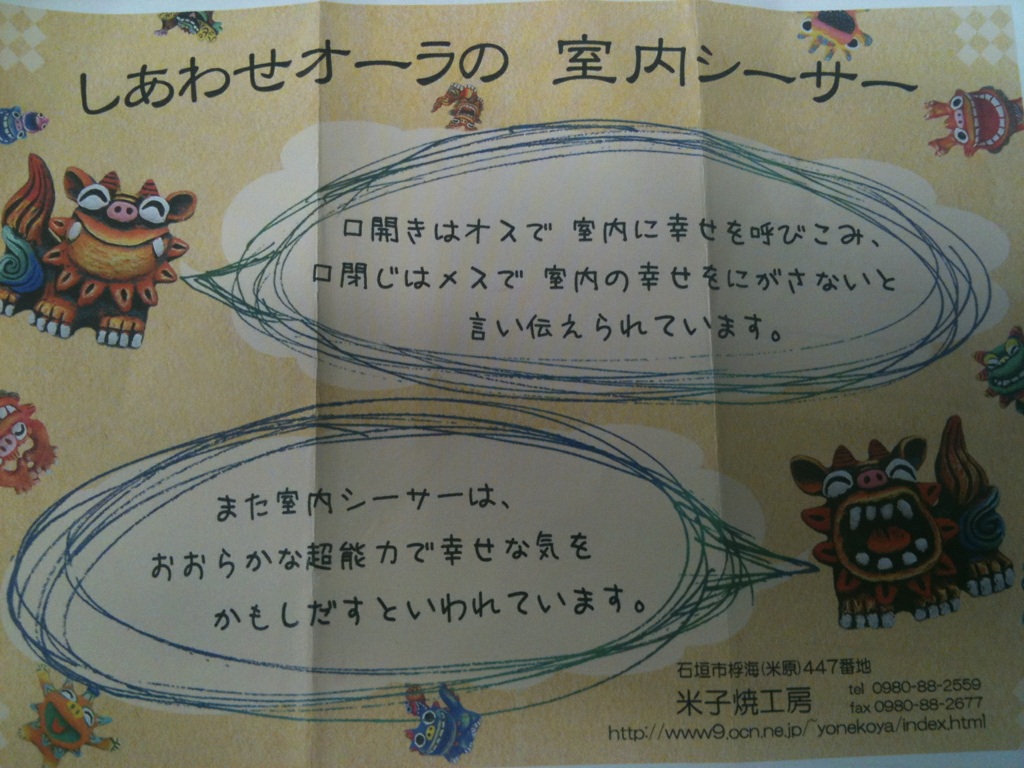 しあわせオーラの 室内シーサー
口開きはオスで 室内に幸せを呼びこみ、
口閉じはメスで 室内の幸せをにがさないと
言い伝えられています。
また室内シーサーは、
おおらかな超能力で幸せな気を
かもしだすといわれています。
石垣市桴海(米原)447番地
米子焼工房
tel 0980-88-2559
fax 0980-88-2677
http://www9.ocn.ne.jp/~yonekoya/index.html